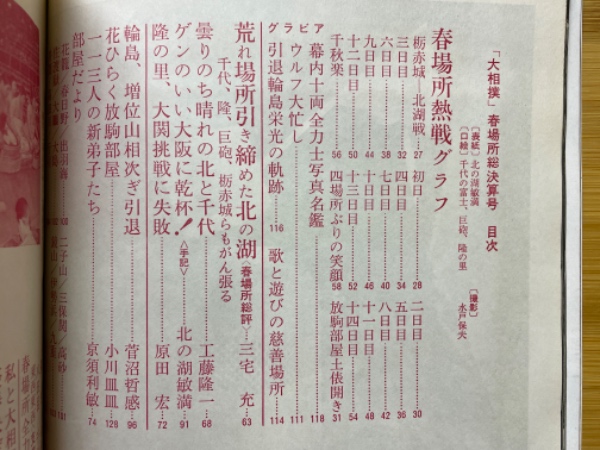 「大相撲」春場所総決算号 目次
〔表紙〕北の湖敏満
〔口絵〕千代の富士、巨砲、隆の里
〔撮影〕水戸保夫
春場所熱戦グラフ
栃赤城―北湖戦…27 初日…28 二日目…30
三日目…32 四日目…34 五日目…36
六日目…38 七日目…40 八日目…42
九日目…44 十日目…46 十一日目…48
十二日目…50 十三日目…52 十四日目…54
千秋楽…56 四場所ぶりの笑顔…58 放駒部屋土俵開き…31
グラビア
幕内十両全力士写真名鑑…118
ウルフ大忙し…111
引退輪島栄光の軌跡…116 歌と遊びの慈善場所…114
荒れ場所引き締めた北の湖〈春場所総評〉…三宅 充…63
千代、隆、巨砲、栃赤城らもがん張る
曇りのち晴れの北と千代…工藤隆一…68
ゲンのいい大阪に乾杯!〈手記〉…北の湖敏満…91
隆の里、大関挑戦に失敗…原田 宏…72
輪島、増位山相次ぎ引退…菅沼哲感…96
花ひらく放駒部屋…小川皿皿…128
一一三人の新弟子たち…京須利敏…74
部屋だより
花籠 春日野 出羽海
二子山／三保関／高砂
春場所
私と大相